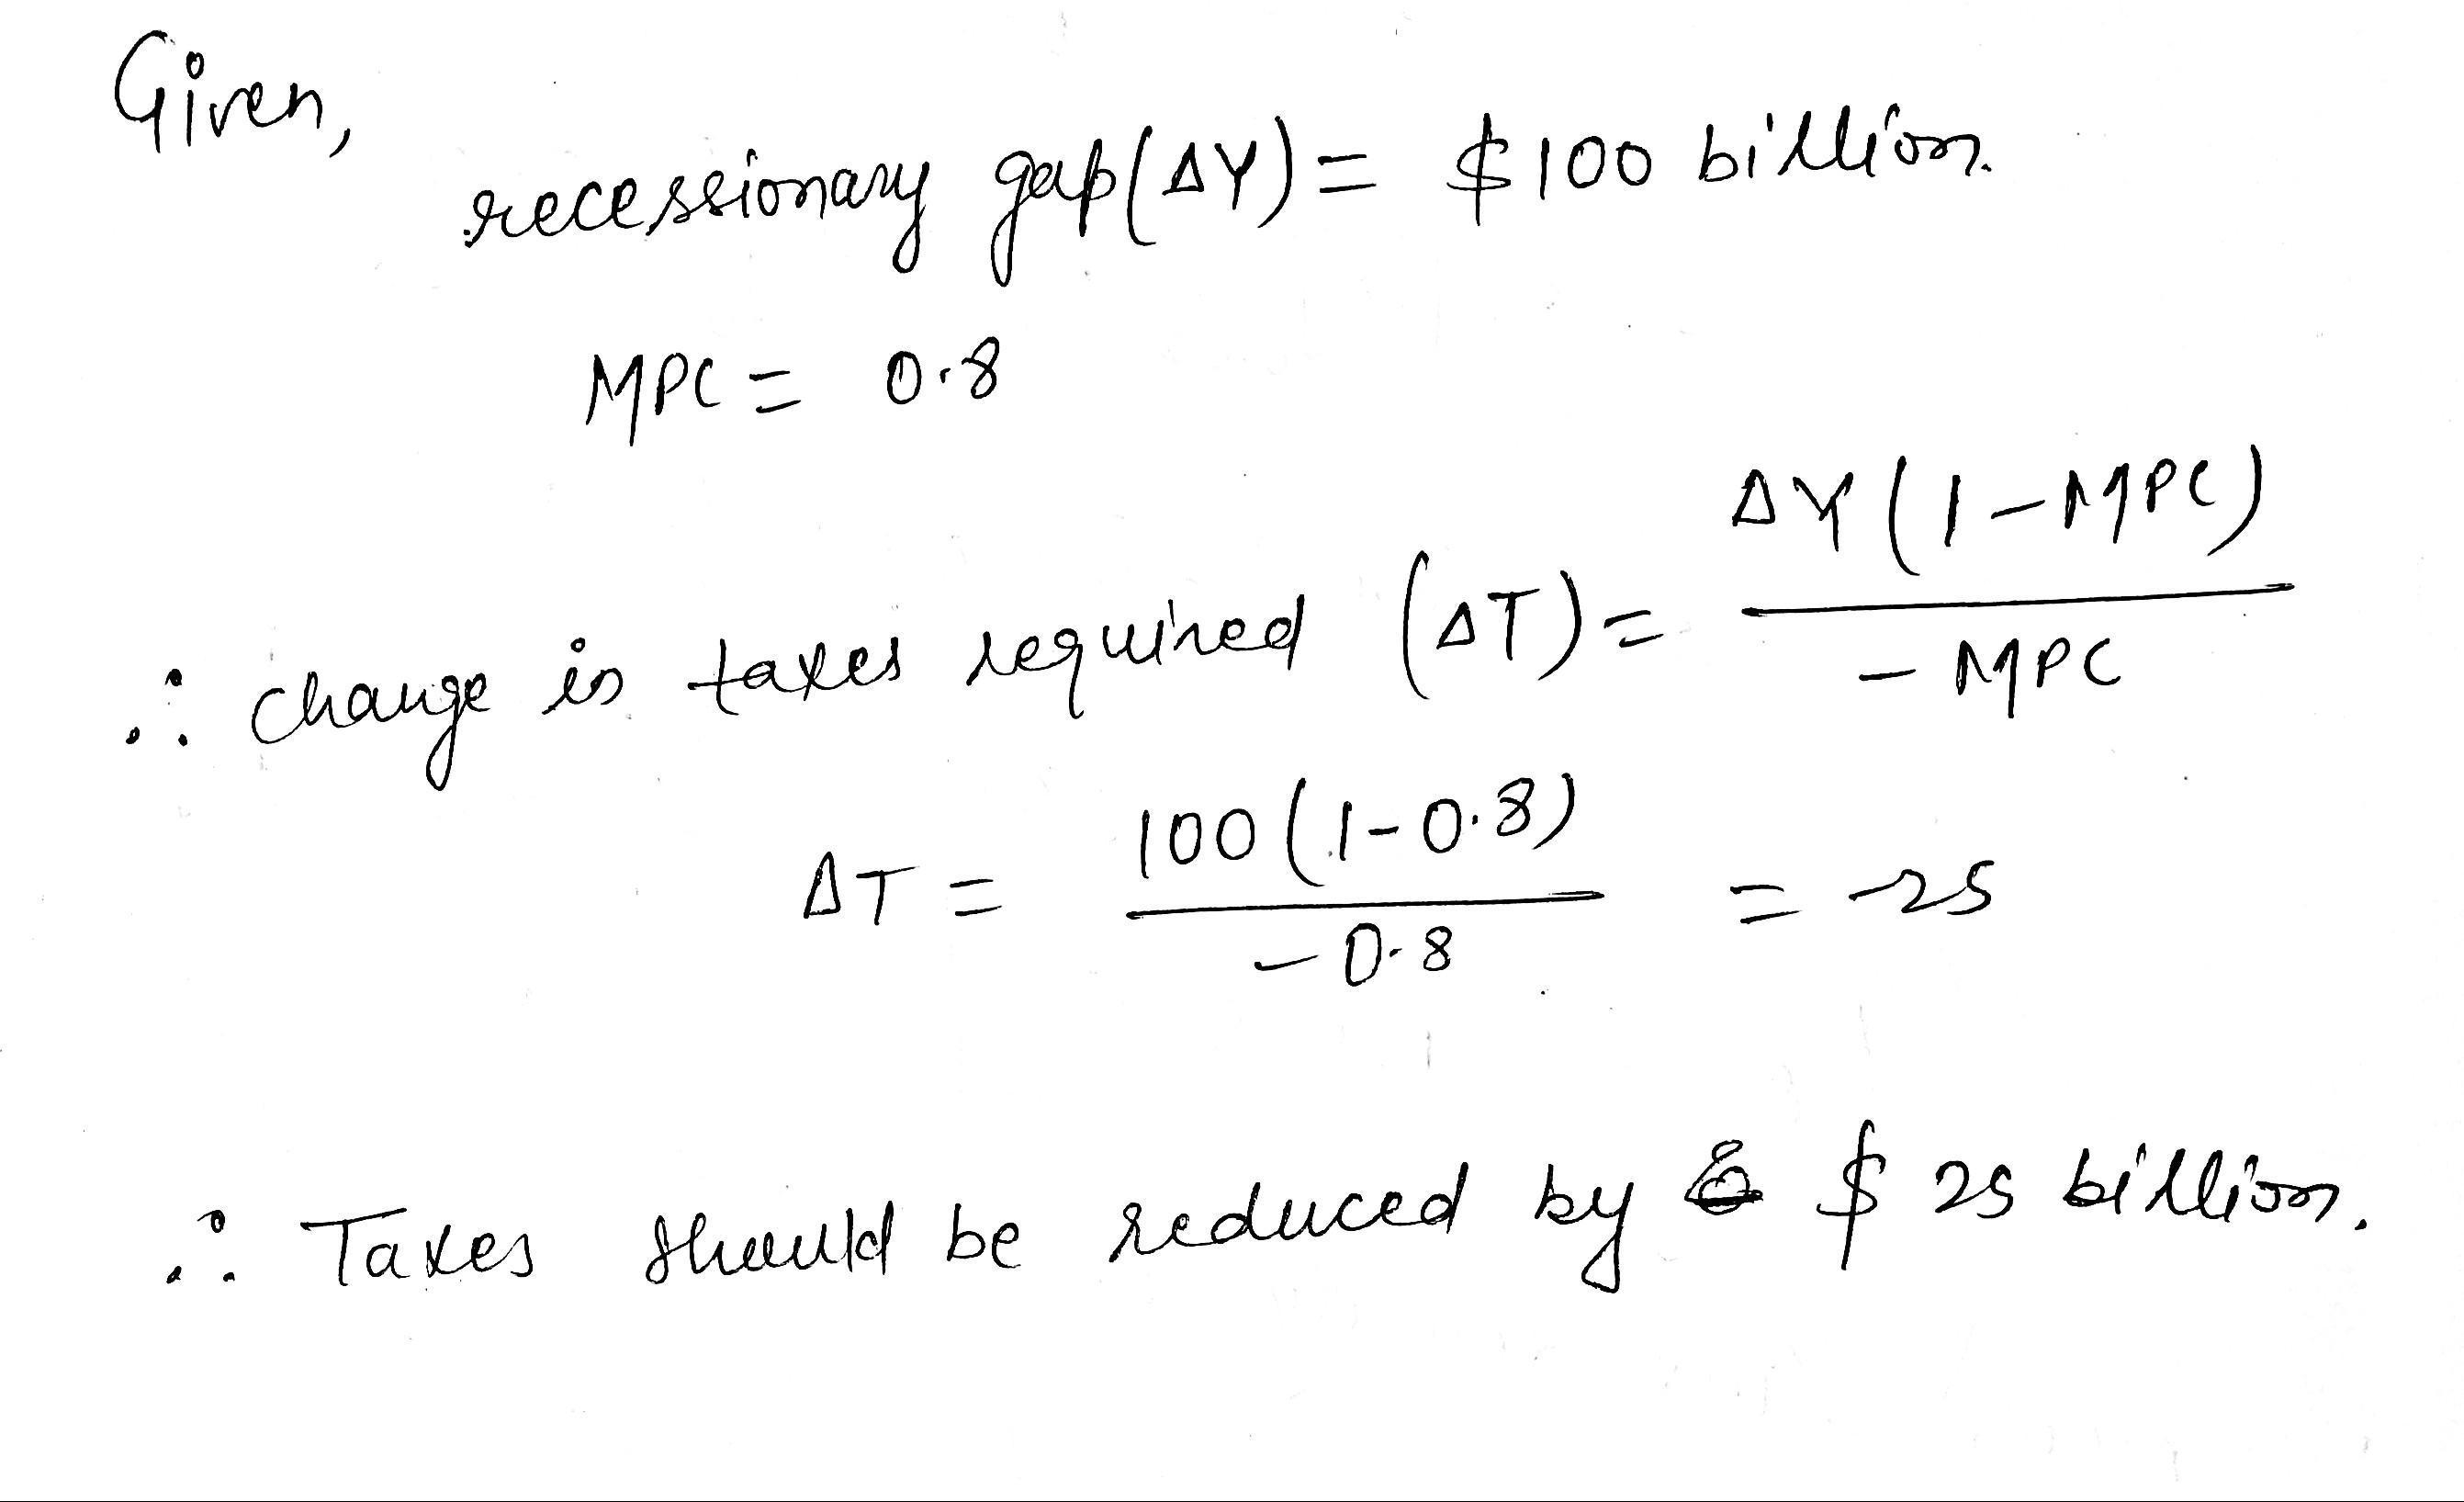 Given,
recessionary gap (ΔY) = $100 billion.
MPC = 0.8
∴ change in taxes required (ΔT) = ΔY(1-MPC) / -MPC
ΔT = 100(1-0.8) / -0.8 = -25
∴ Taxes should be reduced by $ 25 billion.